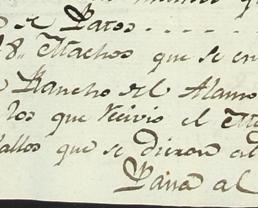 de Patos . . . . .
8„ Machos que se en
Rancho del Alamo
los que Recivio el
allos que se dieron al
Para al